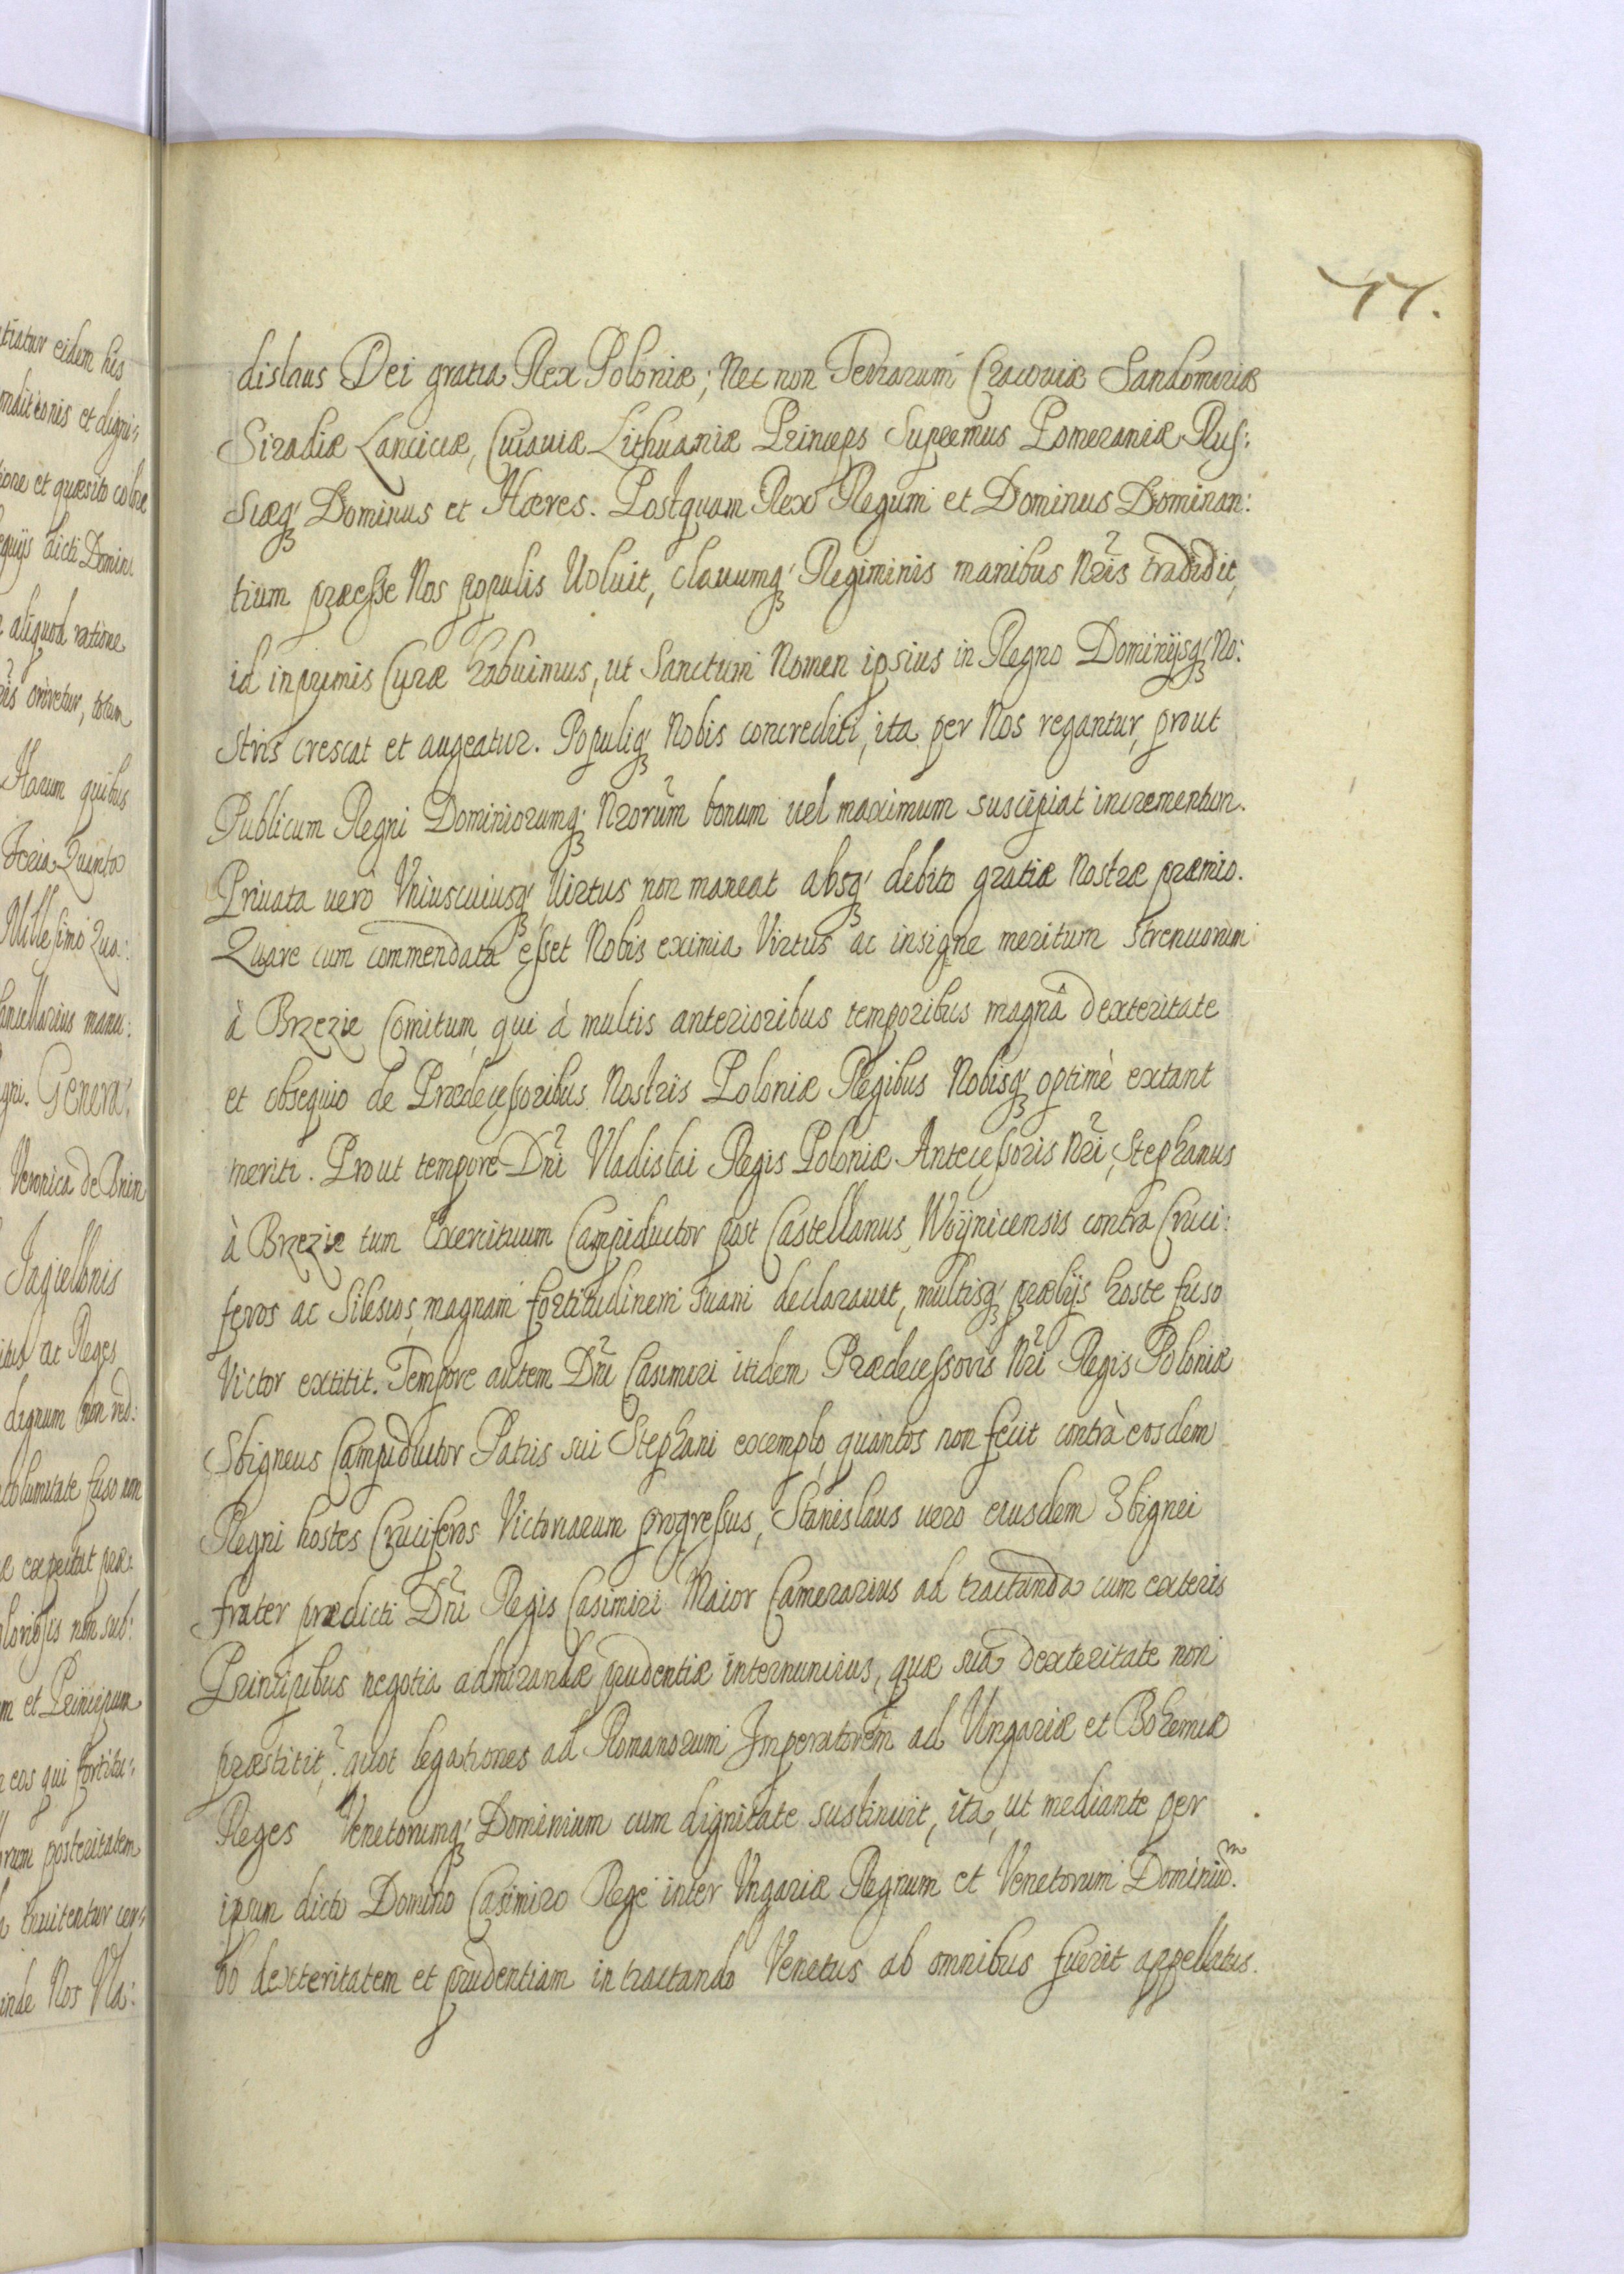 11.
dislaus Dei gratia Rex Poloniæ; Nec non Terrarum Cracoviæ Sandomeriæ
Siradiæ Lanciciæ, Cuiauiæ Lithuaniæ Princeps Supremus Pomeraniæ Rus:
siæq́ꝫ Dominus et Hæres. Postquam Rex Regum et Dominus Dominan:
tium præesse Nos populis Voluit, clauumq́ꝫ Regiminis manibus Nr̃is tradidit,
id inprimis Curæ habuimus, ut Sanctum Nomen ipsius in Regno Dominijsq́ꝫ No:
stris crescat et augeatur. Populiq́ꝫ Nobis concrediti, ita per Nos regantur, prout
Publicum Regni Dominiorumq́ꝫ Nrõrum bonum uel maximum suscipiat incrementum.
Priuata uero Vniuscuiusq́ꝫ Virtus non maneat absq́ꝫ debito gratiæ Nostræ præmio.
Quare cum commendata esset Nobis eximia Virtus ac insigne meritum strenuorum
à Brzezie Comitum, qui à multis anterioribus temporibus magnâ dexteritate
et obsequio de Prædecessoribus Nostris Poloniæ Regibus Nobisq́ꝫ optimè extant
meriti. Prout tempore Dñi Vladislai Regis Poloniæ Antecessoris Nr̃i, Stephanus
à Brzezie tum Exercituum Campiductor post Castellanus Woÿnicensis contra Cruci:
feros ac Silesios, magnam fortitudinem suam declarauit, multisq́ꝫ prælijs hoste fuso
Victor extitit. Tempore autem Dñi Casimiri itidem Prædecessoris Nr̃i Regis Poloniæ
Sbigneus Campiductor Patris sui Stephani exemplo, quantos non fecit contrà eosdem
Regni hostes Cruciferos Victoriarum progressus, Stanislaus uero eiusdem Sbignei
frater prædicti Dñi Regis Casimiri Maior Camerarius ad tractanda cum exteris
Principibus negotia admirandæ prudentiæ internuncius, quæ suâ dexteritate non
præstitit? quot legationes ad Romanorum Imperatorem ad Vngariæ et Bohemiæ
Reges Venetorumq́ꝫ Dominium cum dignitate sustinuit, ita, ut mediante per
ipsum dicto Domino Casimiro Rege inter Vngariæ Regnum et Venetorum Dominiuᵐ.
ob dexteritatem et prudentiam in tractando Venetus ab omnibus fuerit appellatus.